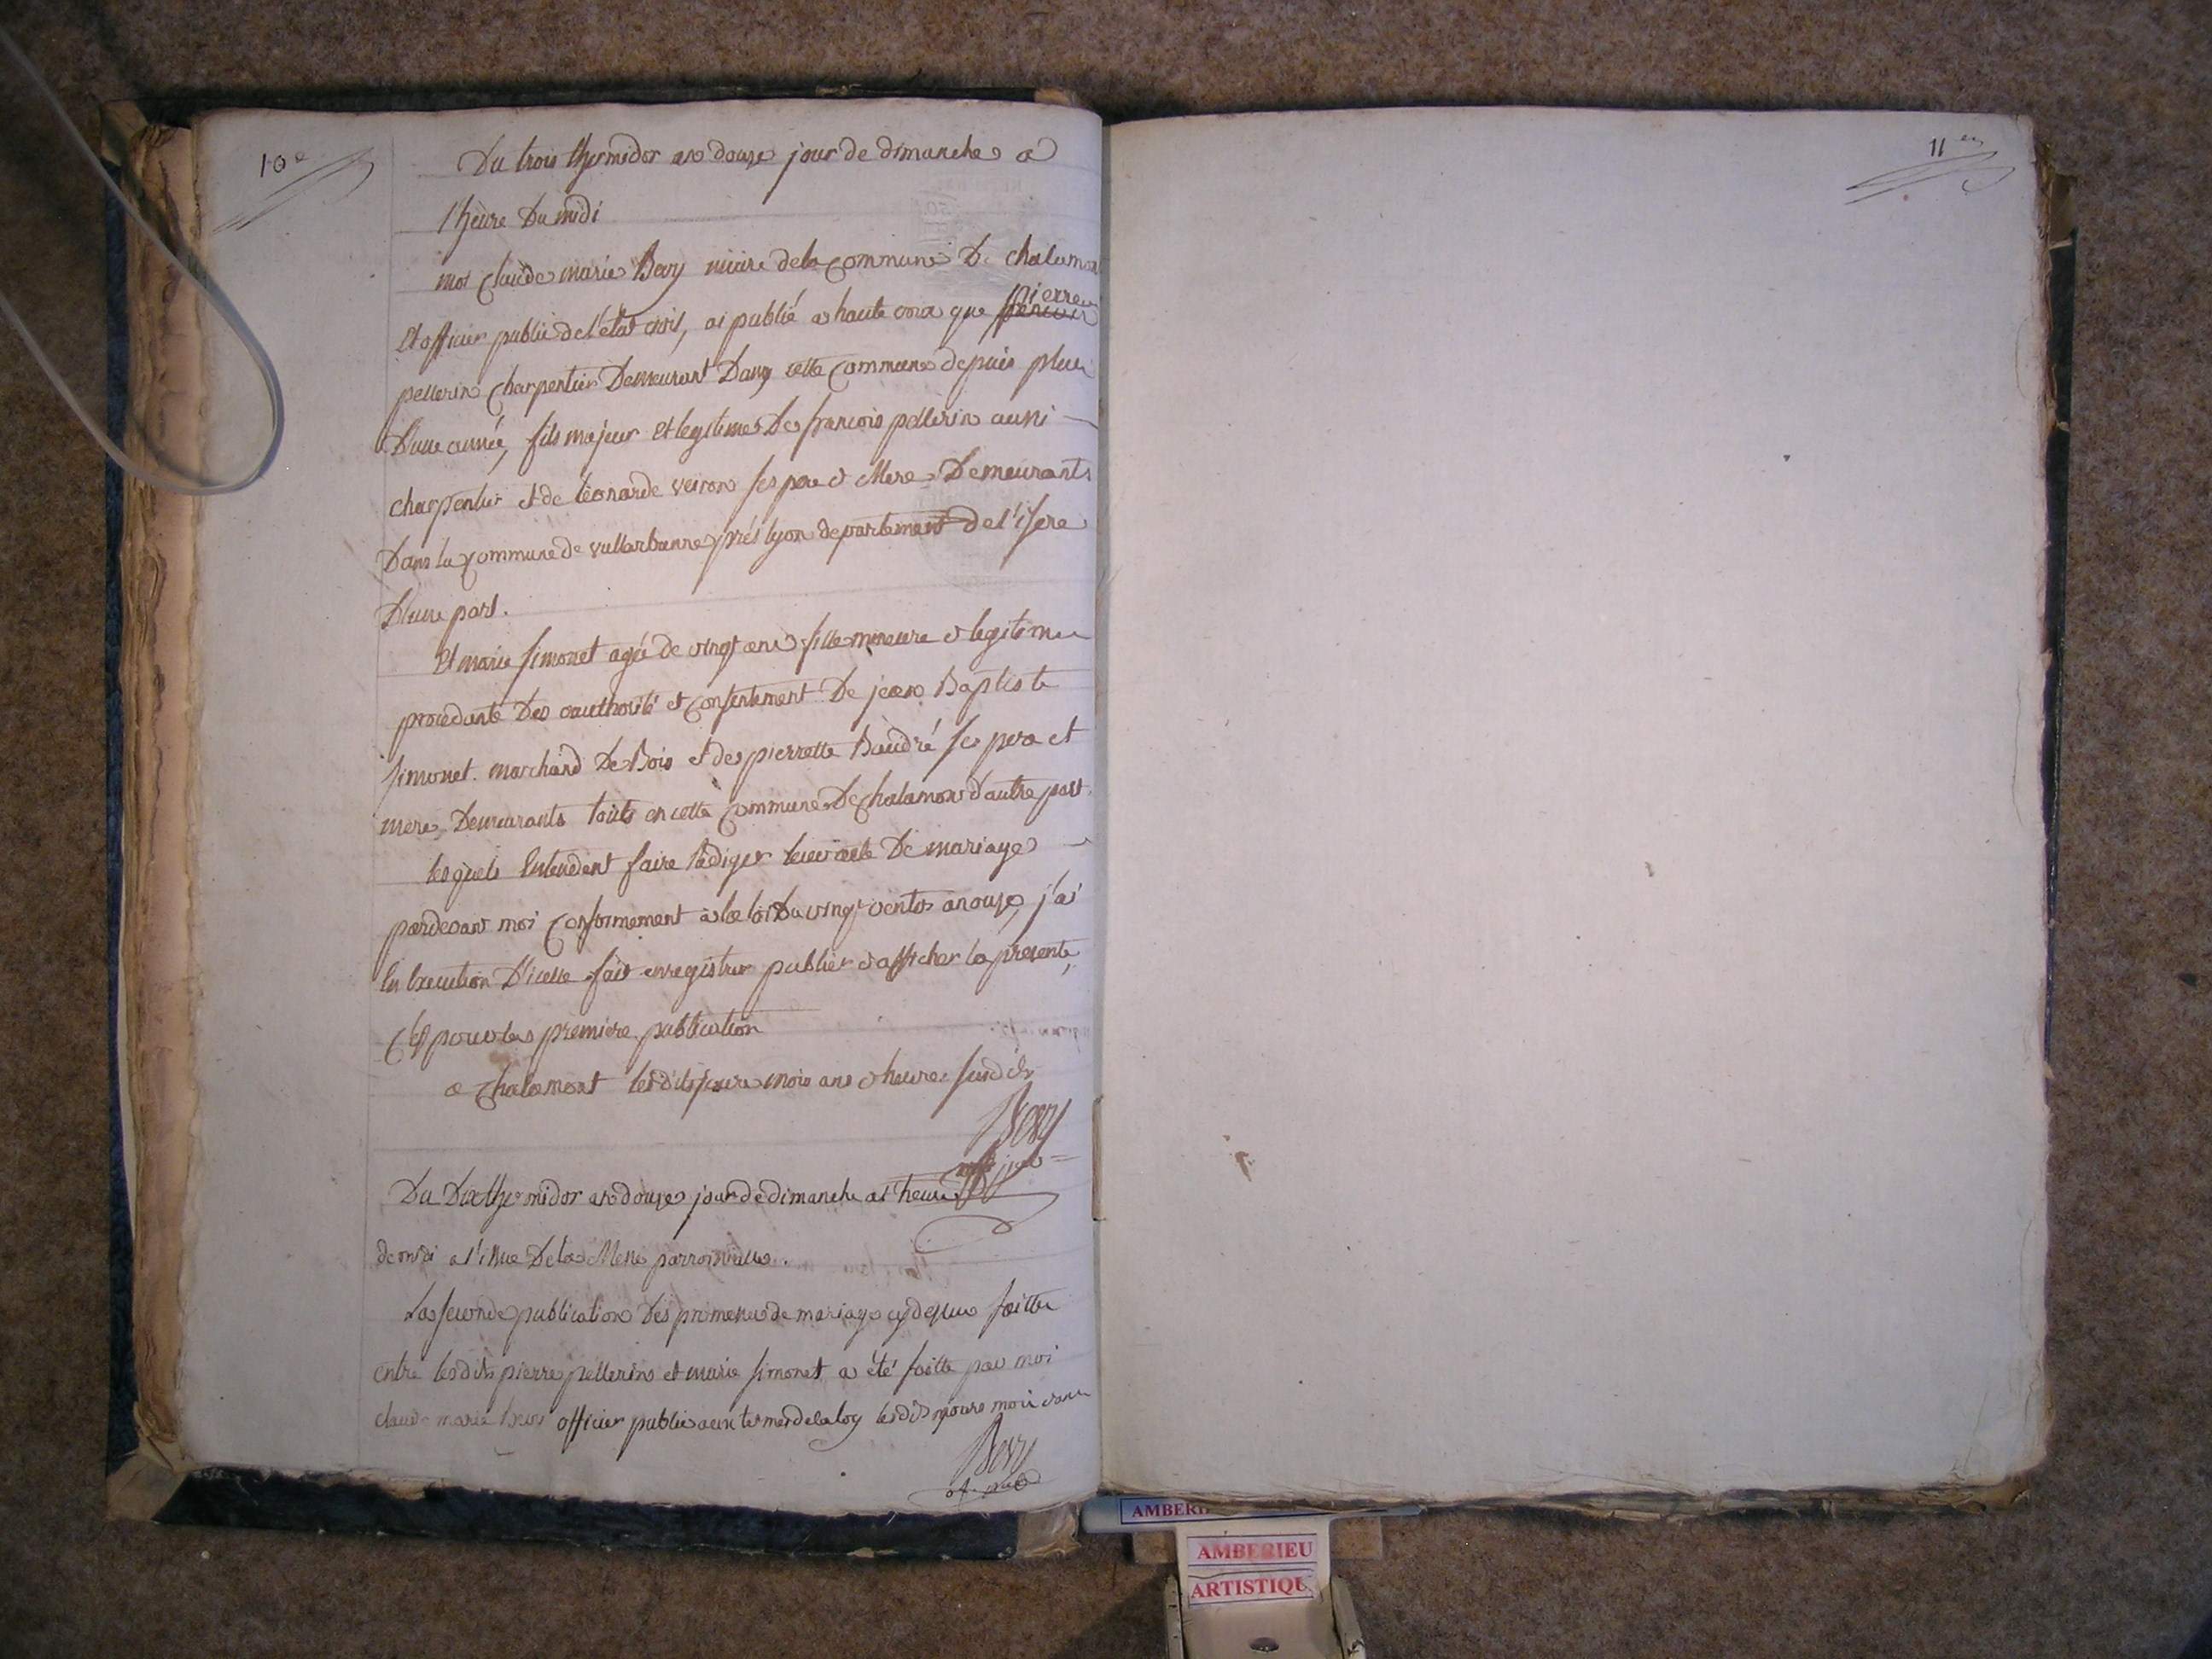 10e
Du trois thermidor an douze jour de dimanche a
l'heure Du midi
moi Claude marie Bevy maire dela Commune De chalamon
Et officier public de l'état civil, ai publié a haute voix que Pierre
pellerin Charpentier Demeurant Dans cette Commune depuis plus
D'une année, fils majeur et legitime De francois pellerin aussi
charpentier et de leonarde veiron ses pere & Mere Demeurants
Dans la Commune de vullarbanne près lyon departement de l'isere
D'une part.
Et marie simonet agée de vingt ans fille mineure & legitime
procedante De authorité et Consentement De jean Baptiste
simonet marchand De Bois et de pierrette Baudré ses pere et
mere, Demeurants touts en cette Commune De Chalamon d'autre part
lesquels Entendent faire Rediger leur acte De mariage
pardevant moi Conformement a la loi Du vingt ventos an onze, j'ai
En Execution D'icelle fait enregistrer publier & afficher la presente,
Et pour la premiere publication
a Chalamont lesdits jour mois an & heure susdits
Bevy
Du Dix thermidor an douze jour de dimanche a l'heure
de midi a l'issue De la Messe parroissialle.
La seconde publication Des promesses de mariage cy dessus faitte
entre lesdits pierre pellerin et marie simonet a été faitte par moi
claude marie Bevy officier public aux termes de la loy lesdits jours mois & an
Bevy
of. pub
11e
AMBERI
AMBERIEU
ARTISTIQU